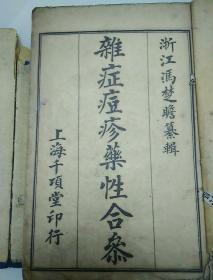 浙江馮楚瞻纂輯
雜症痘疹藥性合叅
上海千頃堂印行